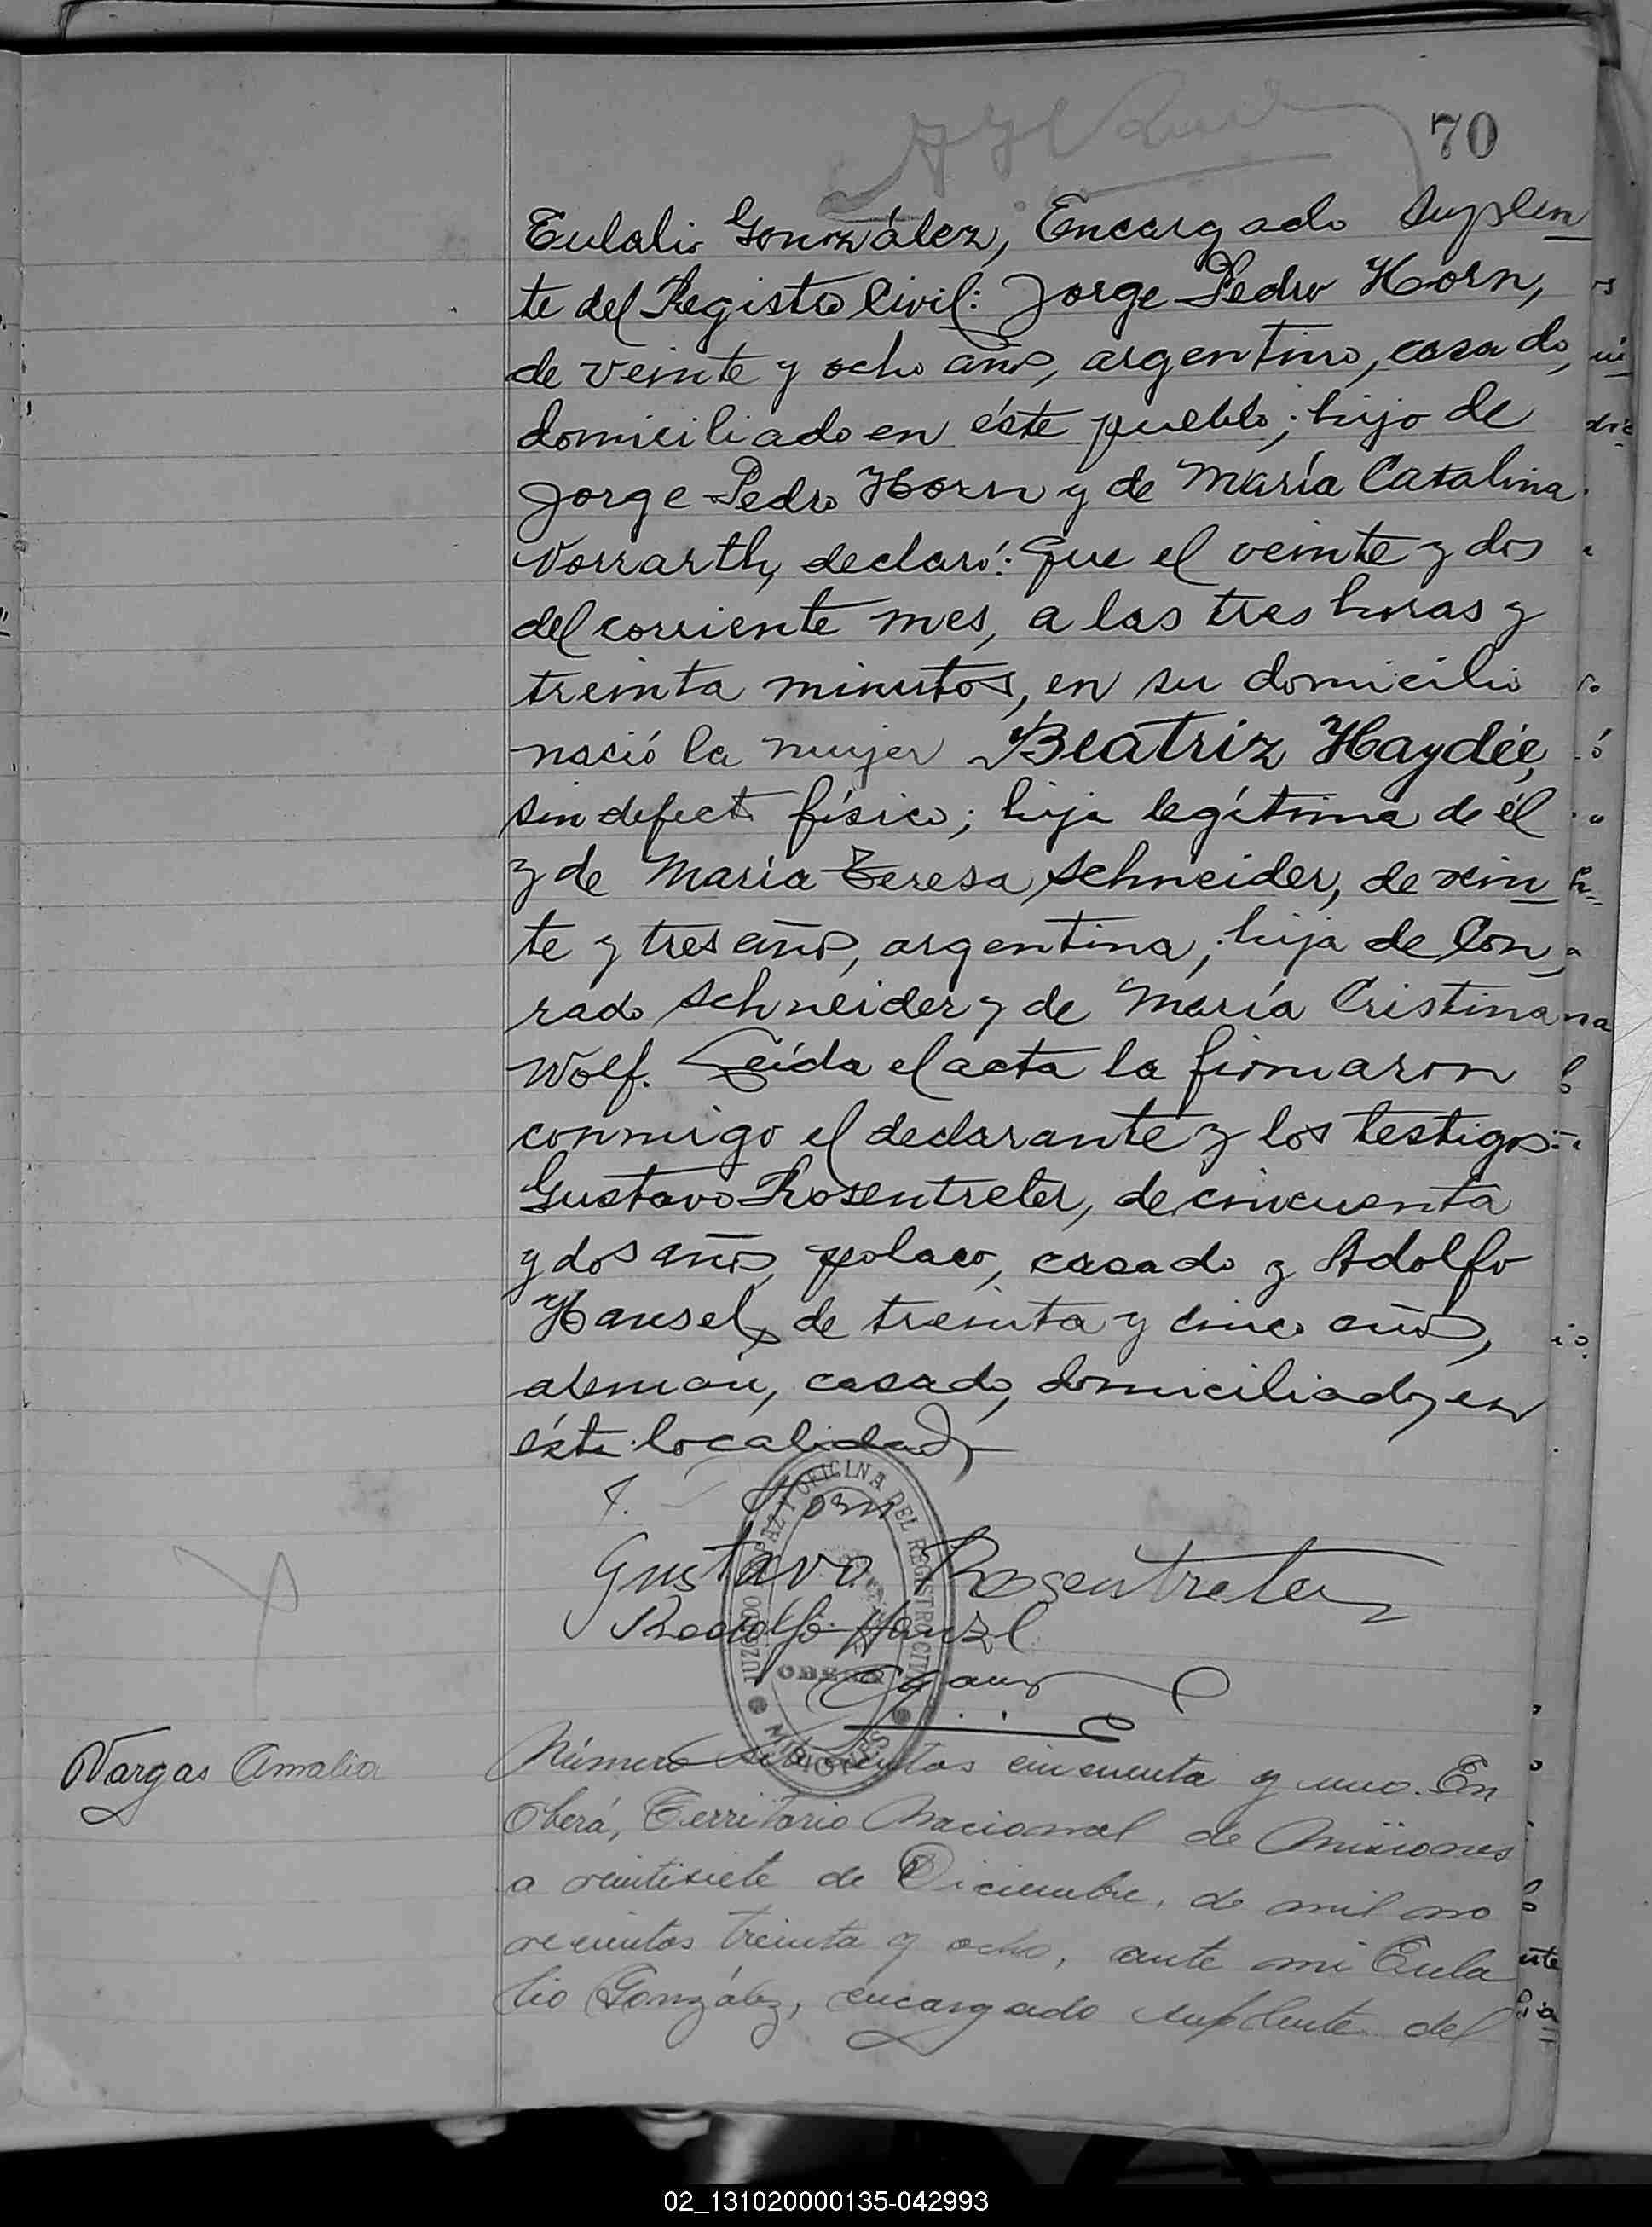 70
Eulalio González, Encargado Suplen
te del Registro Civil: Jorge Pedro Horn,
de veinte y ocho años, argentino, casado,
domiciliado en éste pueblo; hijo de
Jorge Pedro Horn y de María Catalina
Vorrarth, declaró: Que el veinte y dos
del corriente mes, a las tres horas y
treinta minutos, en su domicilio
nació la mujer Beatriz Haydée,
sin defecto físico; hija legítima de él
y de María Teresa Schneider, de vein
te y tres años, argentina; hija de Con
rado Schneider y de María Cristina
Wolf. Leída el acta la firmaron
conmigo el declarante y los testigos:
Gustavo Rosentreter, de cincuenta
y dos años, polaco, casado y Adolfo
Hansel, de treinta y cinco años,
alemán, casado, domiciliados en
ésta localidad
Horn
Gustavo Rosentreter
Rodolfo Hanzl
JUZGADO DE PAZ Y OFICINA DEL REGISTRO CIVIL
OBERA
MISIONES
Vargas Amalia
Número setecientos cincuenta y uno. En
Oberá, Territorio Nacional de Misiones
a veintisiete de Diciembre, de mil no
vecientos treinta y ocho, ante mi Eula
lio González, encargado suplente del
02_131020000135-042993